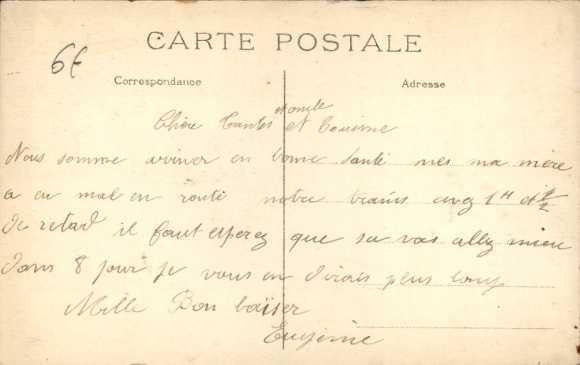 CARTE POSTALE
6f
Correspondance
Adresse
et oncle
Chère Tantes et Cousine
Nous somme arriver en bonne santé mes ma mère
a eu mal en route notre trains avez 1H et 1/2
de retard il faut esperez que sa vas allez mieu
dans 8 jour je vous en dirais plus long
Mille Bon baiser
Eugénie